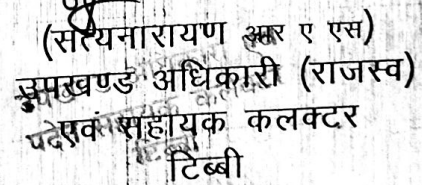 (सत्यनारायण आर ए एस)
उपखण्ड अधिकारी (राजस्व)
पदेन एवं सहायक कलक्टर
टिब्बी